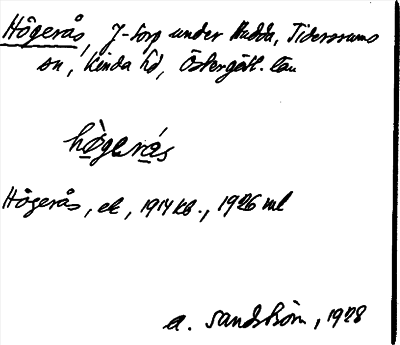 Högerås, J-torp under Budda, Tidersrums
sn, Kinda hd, Östergötl. län
hö̀gerás
Högerås, ek, 1914 kb., 1926 ml
A. Sandström, 1928